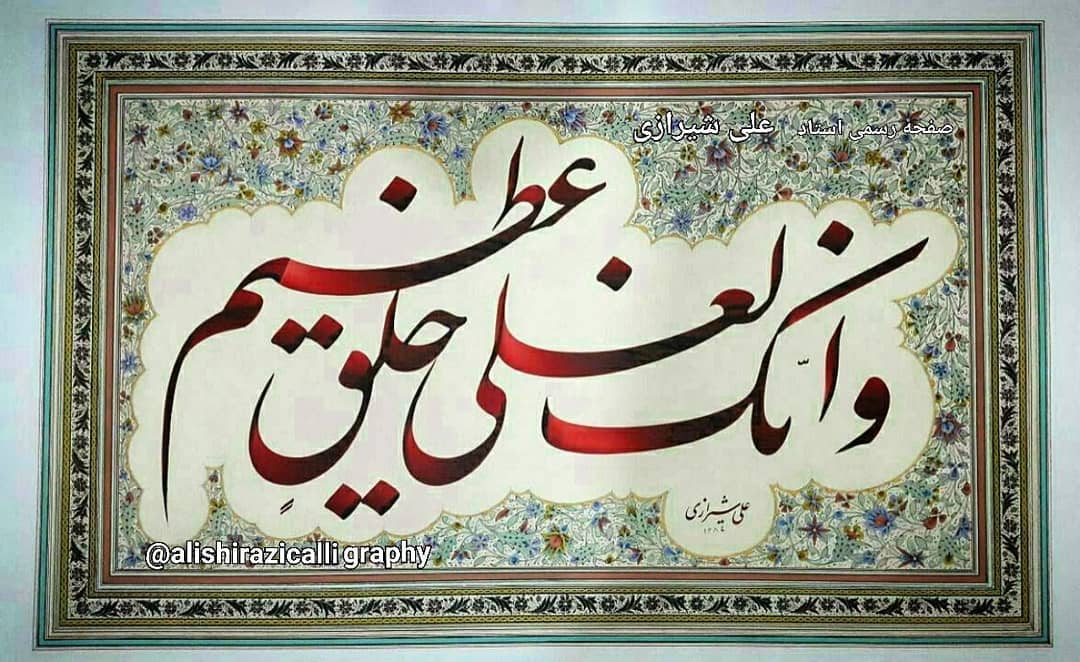 صفحه رسمی استاد علی شیرازی
وانّک لعلی خلقٍ عظیم
علی شیرازی
@alishirazicalli graphy